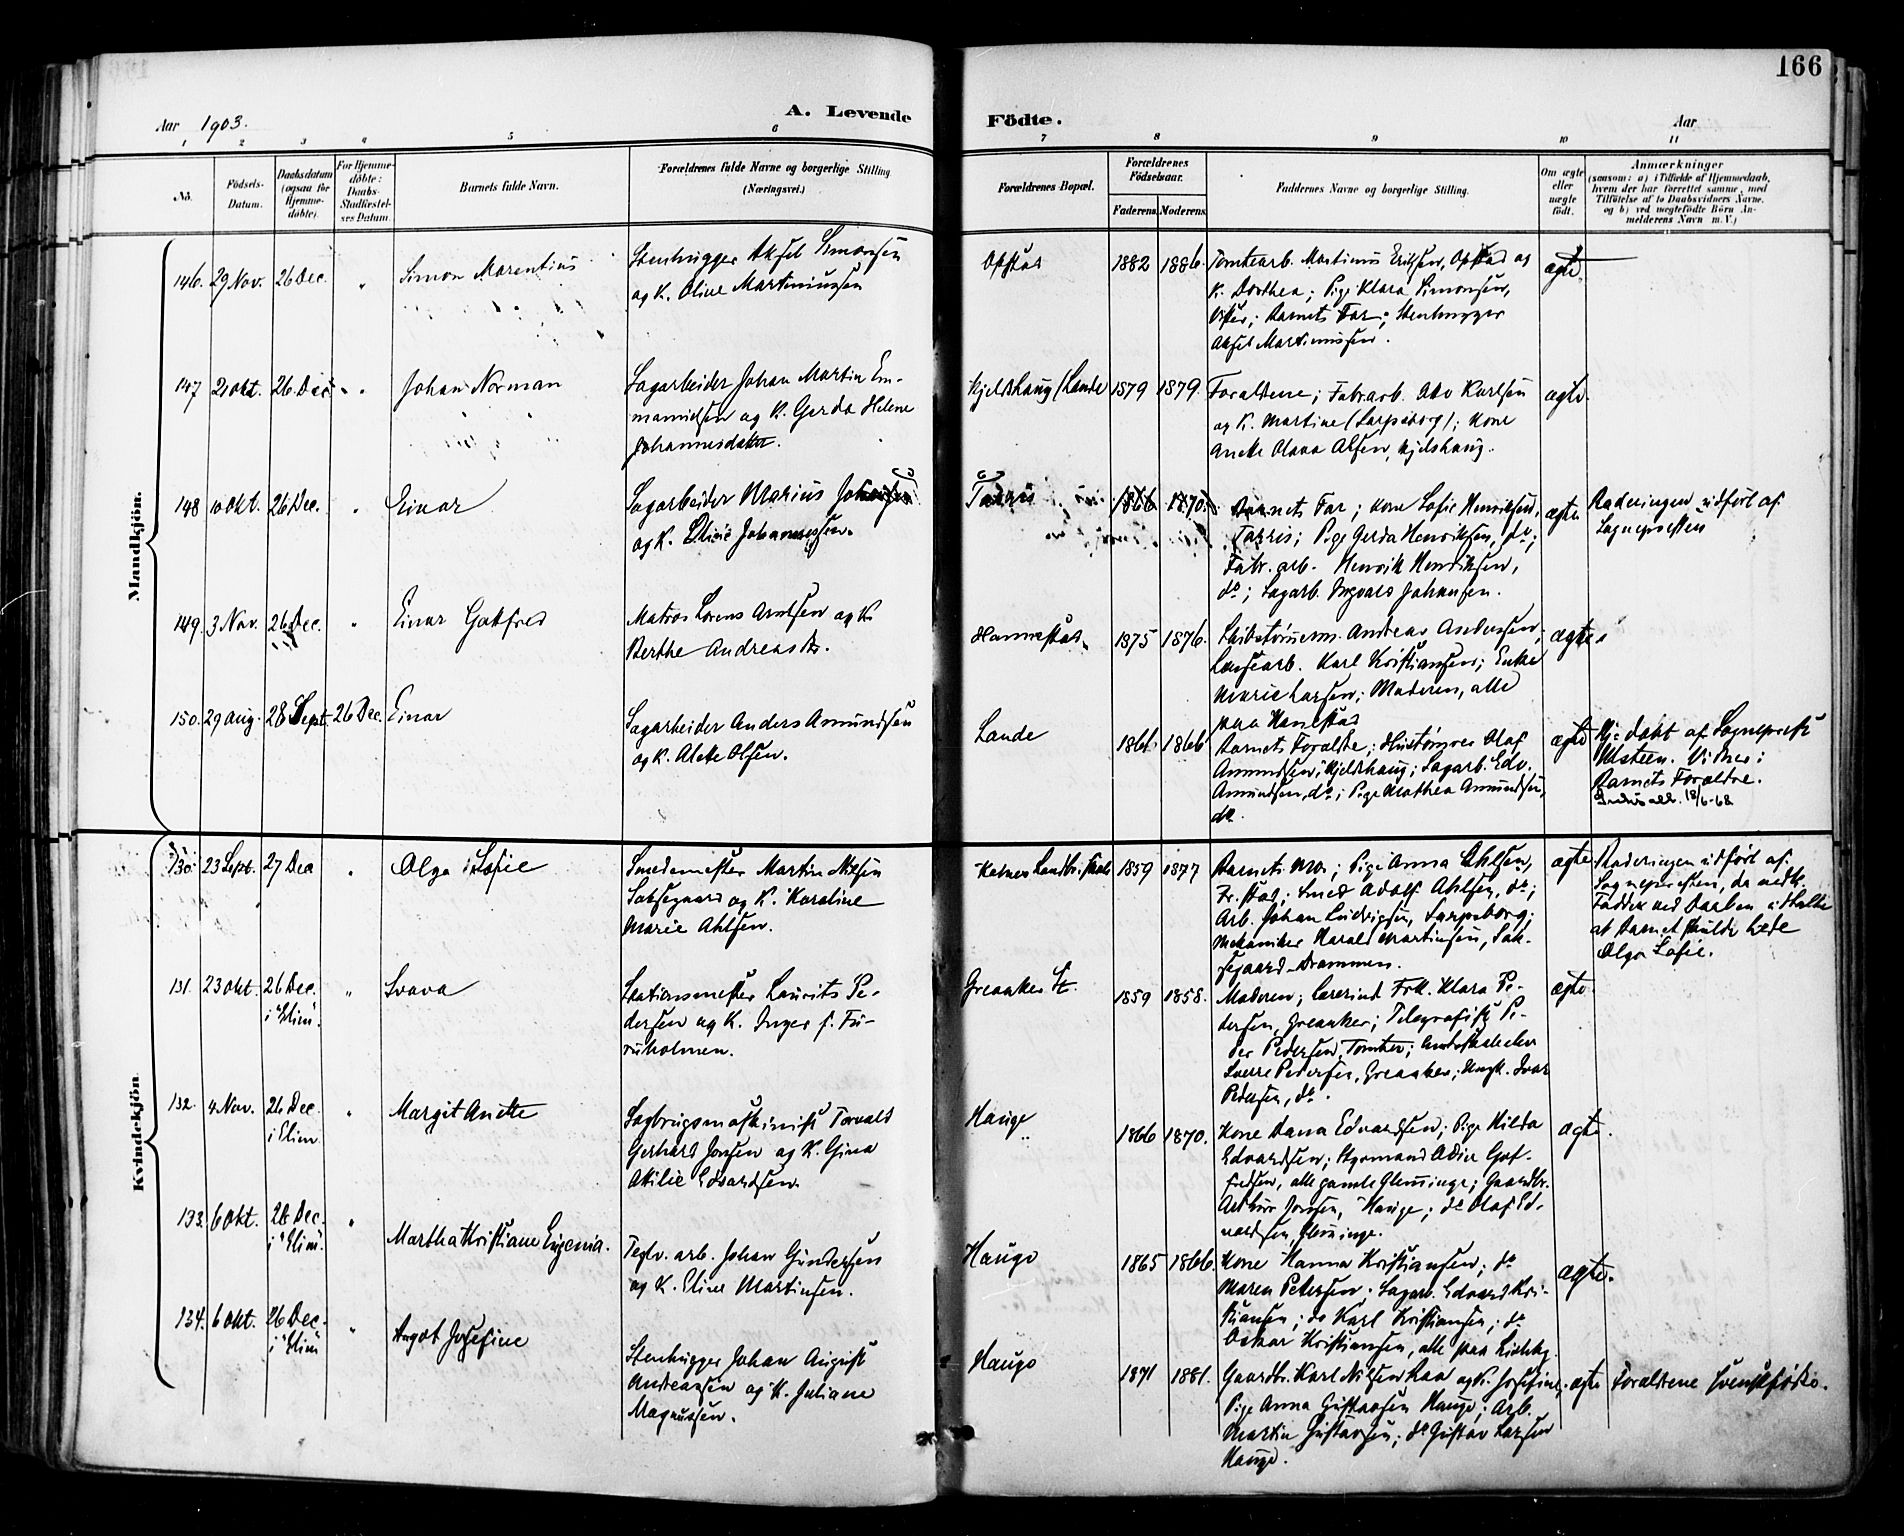 166
Aar 1903.
A. Levende Födte.
Aar
1 2 3 4 5 6 7 8 9 10 11
No.
Födsels-Datum.
Daabsdatum (ogsaa for Hjemmedøbte).
For Hjemmedøbte: Daabs-Stadfæstelses Datum.
Barnets fulde Navn.
Forældrenes fulde Navne og borgerlige Stilling (Næringsvei.)
Forældrenes Bopæl.
Forældrenes Födselsaar.
Faderens.
Moderens.
Faddernes Navne og borgerlige Stilling.
Om ægte eller uægte født.
Anmærkninger
(saasom: a) i Tilfælde af Hjemmedaab, hvem der har forrettet samme, med Tilføielse af to Daabsvidners Navne, og b) ved uægtefødte Börn Anmelderens Navn m. V.)
Mandkjön.
146. 29 Nov. 26 Dec. " Simon Marentius
Stenhugger Aksel Simonsen
og K. Oline Martiniussen
Opstad 1882 1886.
Tomtearb. Martinius Eriksen, Opstad og
K. Dorthea; Pige Klara Simonsen,
Barnets Far; Stenhugger
Aksel Martiniussen.
ægte.
147 21 Okt. 26. Dec. " Johan Norman
Sagarbeider Johan Martin Em-
manuelsen og K. Gerda Helene
Johannesdatter.
Kjeldshaug / Lande 1879 1879.
Forældrene; Fabrarb. Otto Karlsen
og K. Martine (Sarpsborg); Kone
Anette Olava Olsen, Kjelshaug.
ægte.
148 10 Okt. 26 Dec. " Einar
Sagarbeider Marius Johansen
og K. Eline Johannessen.
Torris 1866 1870.
Barnets Far; Kone Sofie Henriksen,
Torris; Pige Gerda Henriksen, do;
Fabr. arb. Henrik Henriksen,
do; Sagarb. Ingvald Johansen.
ægte
Raderingen udført af
Sognepresten
149. 3 Nov. 26 Dec. " Einar Gotfred
Matros Lorens Arntsen og K.
Berthe Andreasdr.
Hannestad. 1875 1876.
Skibstømm. Andreas Andersen,
Landsearb. Karl Kristiansen; Enke
Marie Larsen; Moderen, alle
paa Hannestad
ægte.
150. 29 Aug. 28 Sept. 26 Dec. Einar
Sagarbeider Anders Amundsen
og K. Alette Olsen.
Lande 1861. 1866
Barnets Forældre; Hustømrer Olaf
Amundsen, Kjeldshaug; Sagarb. Edv.
Amundsen, do; Pige Mathea Amundsen,
do.
ægte
Hj: døbt af Sogneprest
Ulsteen. Vidner:
Barnets Forældre.
18/6-68
Kvindekjön.
130. 23 Sept. 27 Dec " Olga Sofie
Smedemester Martin Nilsen
Saksegaard og K. Karoline
Marie Ahlsen.
Kalnes Landbr. skole 1859 1877
Barnets Mor; Pige Anna Ahlsen,
Fr.stad; Smed Adolf Ahlsen, do;
Arb. Johan Ludvigsen, Sarpsborg;
Mekaniker Harald Martinsen, Sak-
segaard - Drammen.
ægte
Raderingen udført af
Sognepresten, da nedt.
Fadder ved Daaben udtalte
at Barnet skulde hede
Olga Sofie.
131. 23 Okt. 26 Dec. i Elim. " Svava
Stationsmester Laurits Pe-
dersen og K. Inger f. Fu-
ruholmen.
Greaaker St. 1859 1858.
Moderen; Lærerinde Frk. Klara Pe-
dersen, Greaaker; Telegrafist Pe-
der Pedersen, Tomter;
Sverre Pedersen, Greaaker; Ungk. Ivar
Pedersen, do.
ægte.
132. 4 Nov. 26 Dec. i Elim. " Margit Anette
Sagbrugsmaskinist Torvald
Gerhard Jonsen og K. Gina
Otilie Edvardsen.
Hauge 1866 1870.
Kone Dana Edvardsen; Pige Hilda
Edvardsen; Styrmand Odin Got-
fredsen, alle gamle Glemminge; Gaardbr.
Arthur Jonsen, Hauge; do Olaf Ed-
vardsen, Glemminge.
ægte.
133. 6 Okt. 26 Dec. i Elim. " Martha Kristiane Eugenia.
Teglv. arb. Johan Gundersen
og K. Eline Martinsen.
Hauge 1865 1866.
Kone Hanna Kristiansen; do
Maren Pettersen; Sagarb. Edvard Kri-
stiansen; do Karl Kristiansen; do
Oskar Kristiansen, alle paa
ægte.
134. 6 Okt. 26 Dec. i Elim " Angot Josefine
Stenhugger Johan August
Andreassen og K. Juliane
Magnussen.
Hauge 1871 1881.
Gaardbr. Karl Nilsen Raa og K. Josefine;
Pige Anna Gustavsen Hauge; Arb.
Martin Gustavsen; do Gustav Larsen
Hauge.
ægte
Forældrene svenskfødte.